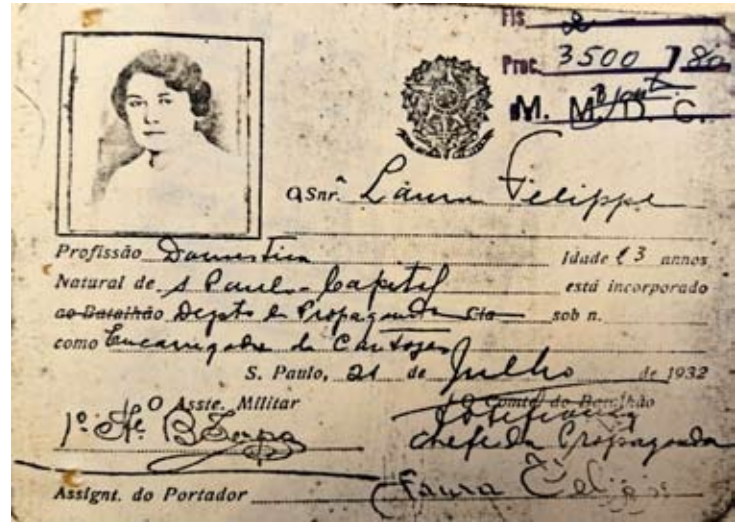 Fls. 2
Proc. 3500 / 80
M. M. D. C.
a Snr.ª Laura Felippe
Profissão Domestica Idade 23 annos
Natural de S Paulo - Capital está incorporado
ao Batalhão Depto de Propaganda Cia sob n.
como Encarregada de Cartazes
S. Paulo, 21 de Julho de 1932
O Asste. Militar O Comte do Batalhão
1º
Chefe da Propaganda
Assignt. do Portador Laura Felippe